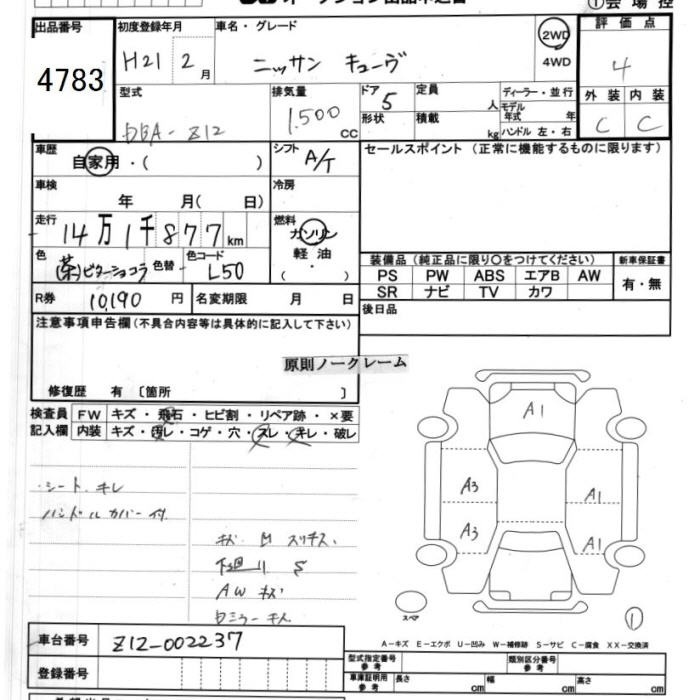 オークション出品申込書 ①会場控
出品番号 初度登録年月 車名・グレード 2WD 評価点
4783 H21 2月 ニッサン キューヴ 4WD 4
型式 排気量 ドア 5 定員 人 ディーラー・並行 外装 内装
DBA-Z12 1.500 cc 形状 積載 kg モデル年式 年 C C
ハンドル 左・右
車歴 自家用・( ) シフト A/T セールスポイント (正常に機能するものに限ります)
車検 年 月( 日) 冷房
走行 14万1千877km 燃料 ガソリン
軽油
( ・ )
色 (茶)ビターショコラ 色替 色コード L50 装備品 (純正品に限り○をつけてください) 新車保証書
PS PW ABS エアB AW 有・無
SR ナビ TV カワ
R券 10,190 円 名変期限 月 日 後日品
注意事項申告欄 (不具合内容等は具体的に記入して下さい)
原則ノークレーム
修復歴 有 〔箇所 〕
検査員 FW キズ・飛石・ヒビ割・リペア跡・×要
記入欄 内装 キズ・汚レ・コゲ・穴・スレ・キレ・破レ
A1
・シート キレ A3 A1
ハンドルカバー付
A3 A1
キズ 凹 スリキズ、
下廻リ S
AW キズ
スペア ①
A-キズ E-エクボ U-凹み W-補修跡 S-サビ C-腐食 XX-交換済
車台番号 Z12-002237
型式指定番号 参考 類別区分番号 参考
登録番号 車庫証明用 参考 長さ cm 幅 cm 高さ cm